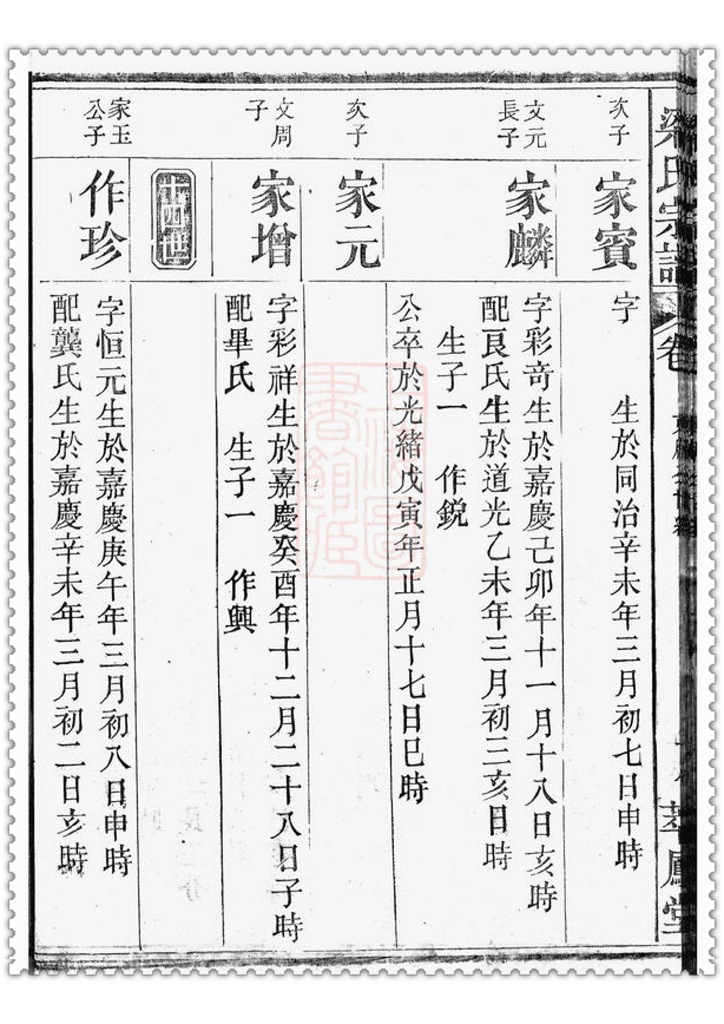 梁氏宗譜
卷
鳳堂
次子
家賓
字　生於同治辛未年三月初七日申時
文元
長子
家麟
字彩奇生於嘉慶己卯年十一月十八日亥時
配良氏生於道光乙未年三月初三亥日時
生子一　作鋭
公卒於光緒戊寅年正月十七日巳時
次子
家元
文周
子
家增
字彩祥生於嘉慶癸酉年十二月二十八日子時
配畢氏　生子一　作興
十四世
家玉
公子
作珍
字恒元生於嘉慶庚午年三月初八日申時
配龔氏生於嘉慶辛未年三月初二日亥時